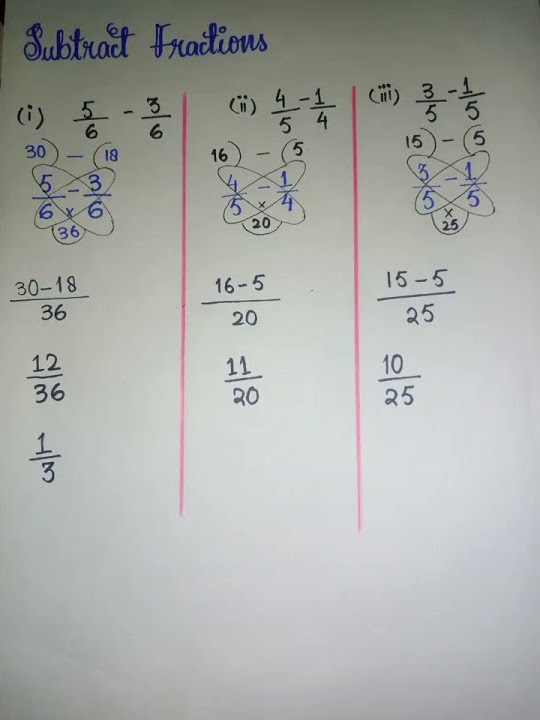 Subtract Fractions
(i) 5/6 - 3/6
30 - 18
5/6 - 3/6
×
36
30-18/36
12/36
1/3
(ii) 4/5 - 1/4
16 - 5
4/5 - 1/4
×
20
16-5/20
11/20
(iii) 3/5 - 1/5
15 - 5
3/5 - 1/5
×
25
15-5/25
10/25